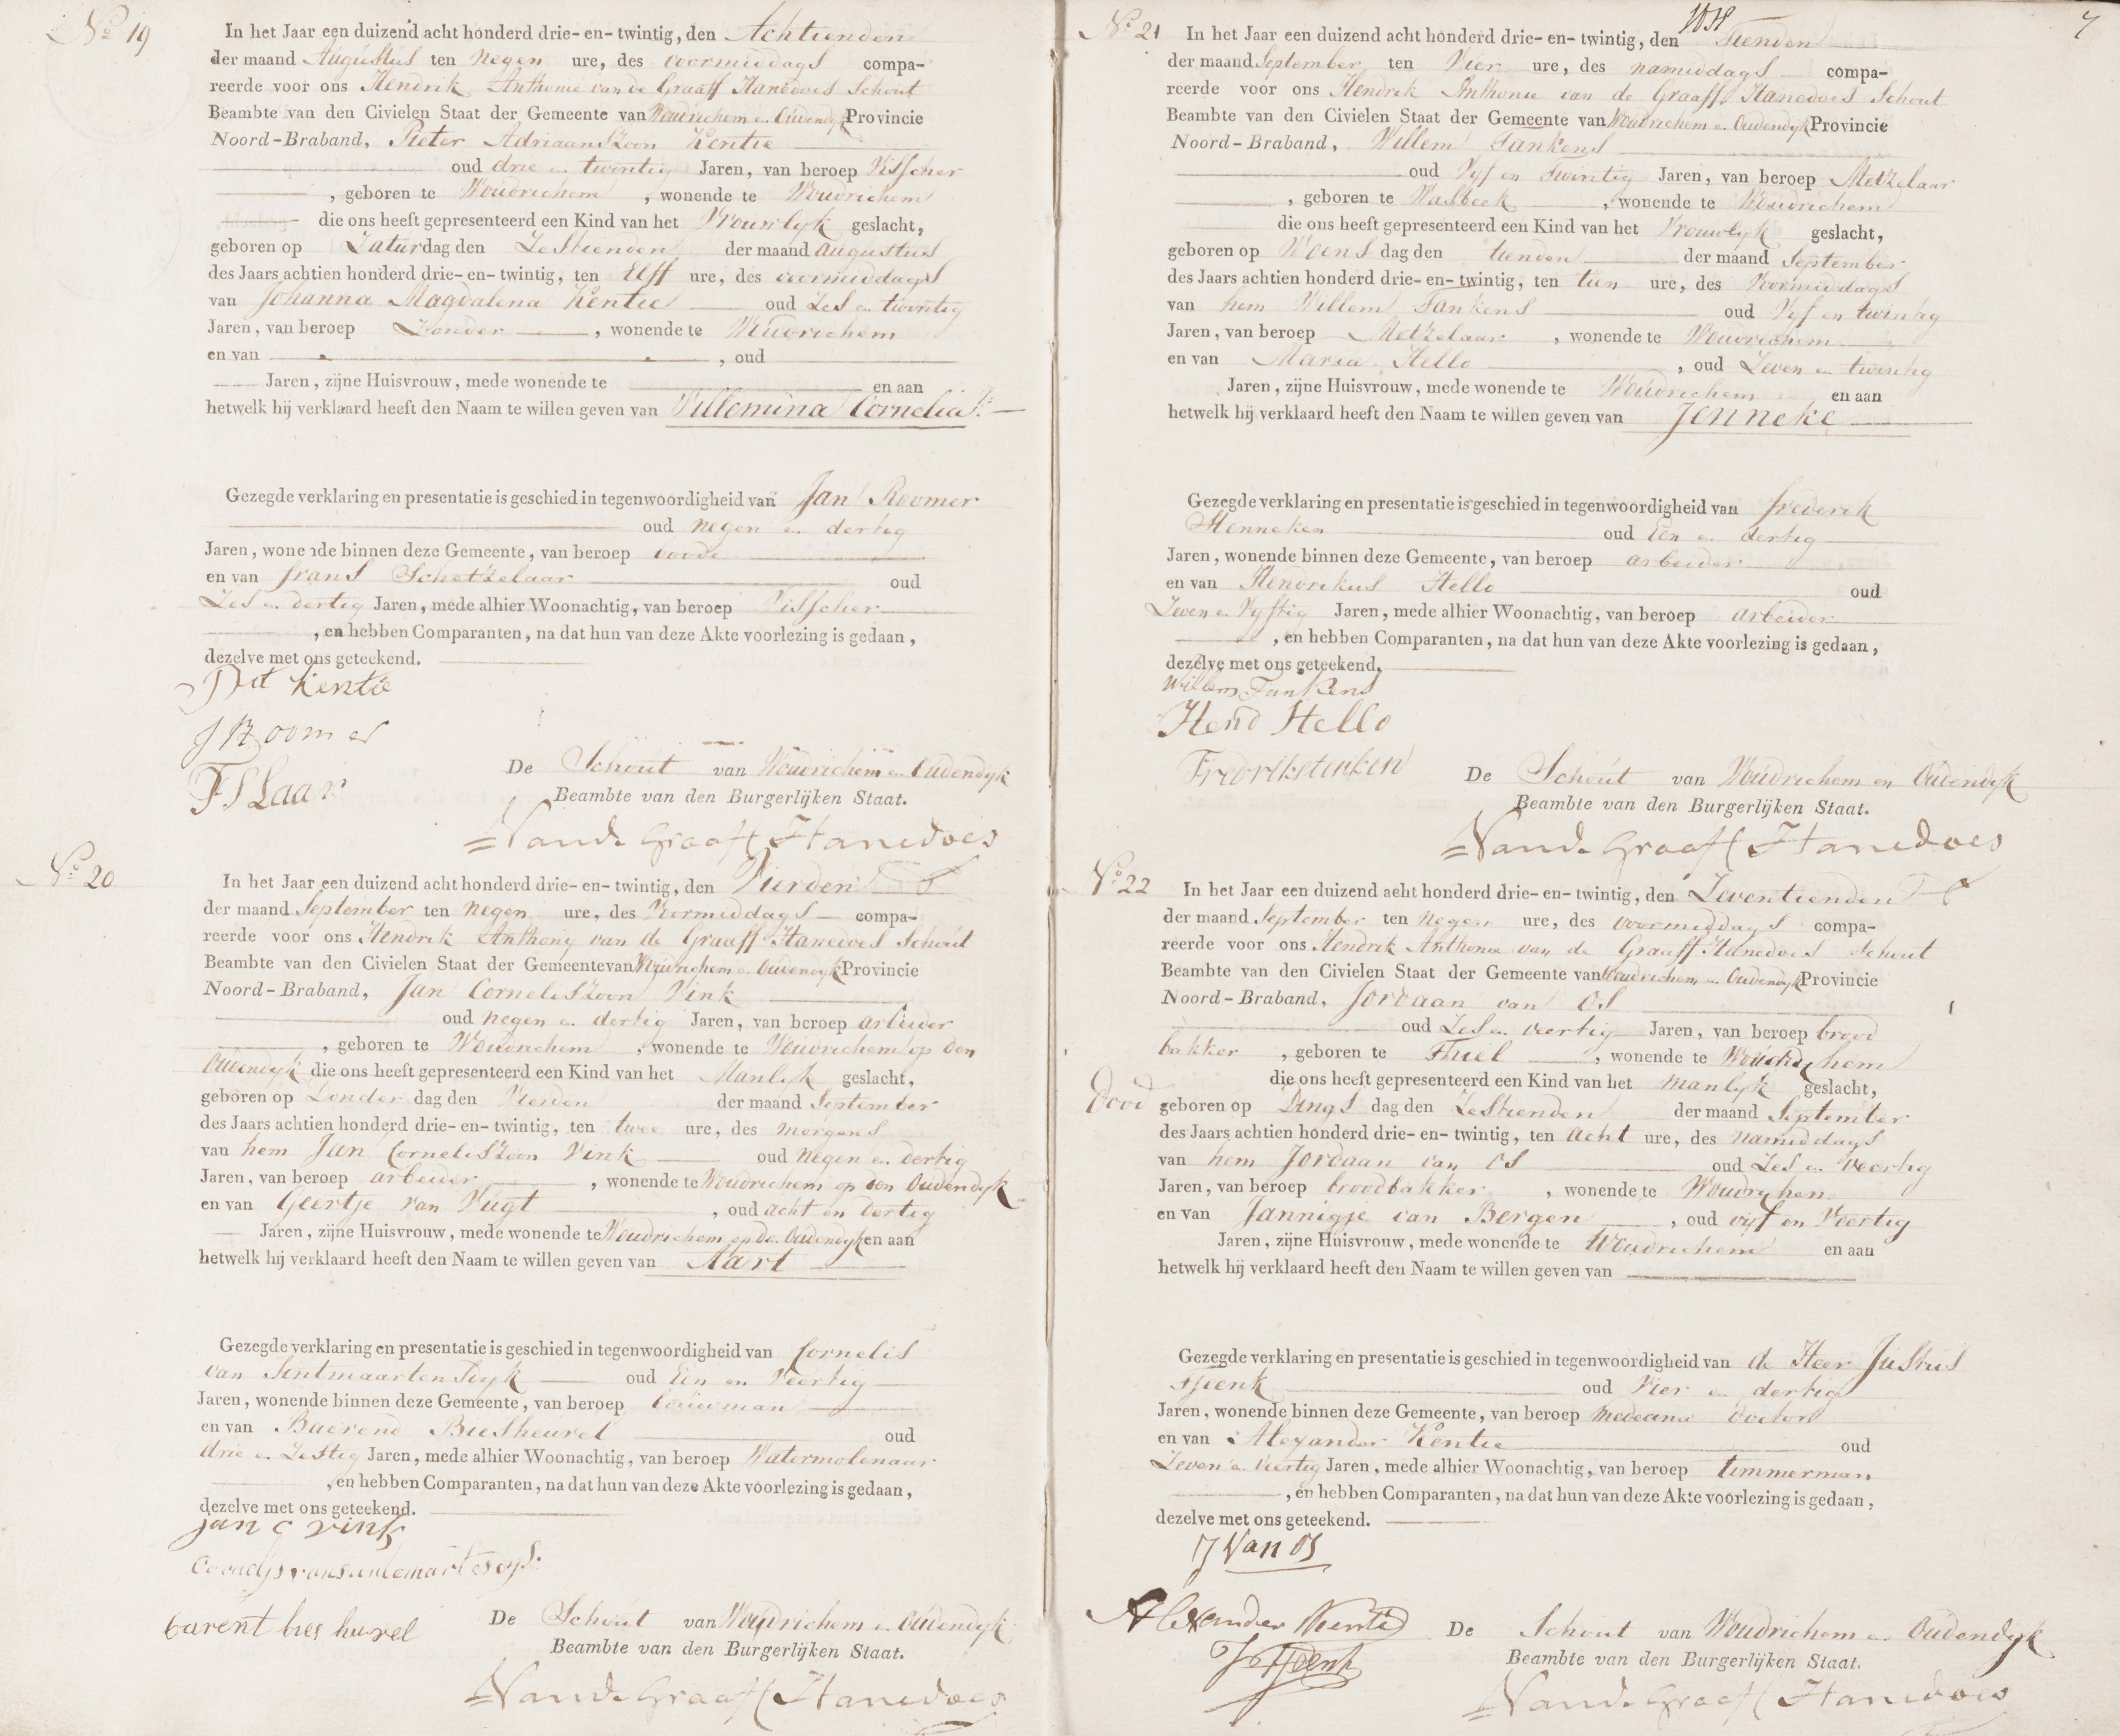 No 19
In het Jaar een duizend acht honderd drie- en- twintig, den Achtienden
der maand Augustus ten Negen ure, des voormiddags compa-
reerde voor ons Hendrik Anthonie van de Graaff Hanedoes Schout
Beambte van den Civielen Staat der Gemeente van Woudrichem en Oudendyk Provincie
Noord-Braband, Pieter Adriaanszoon Kentie
oud drie en twintig Jaren, van beroep Visscher
, geboren te Woudrichem , wonende te Woudrichem
die ons heeft gepresenteerd een Kind van het Vrouwlyk geslacht,
geboren op Zaturdag den Zestienden der maand Augustus
des Jaars achtien honderd drie- en- twintig, ten Elff ure, des voormiddags
van Johanna Magdalena Kentie oud Zes en twintig
Jaren, van beroep Zonder , wonende te Woudrichem
en van , oud
Jaren, zijne Huisvrouw, mede wonende te en aan
hetwelk hij verklaard heeft den Naam te willen geven van Willemina Cornelia
Gezegde verklaring en presentatie is geschied in tegenwoordigheid van Jan Roomer
oud negen en dertig
Jaren, wonende binnen deze Gemeente, van beroep
en van frans Schetzelaar oud
Zes en dertig Jaren, mede alhier Woonachtig, van beroep Visscher
, en hebben Comparanten, na dat hun van deze Akte voorlezing is gedaan,
dezelve met ons geteekend.
Kentie
J Roomer
FSLaar
De Schout van Woudrichem en Oudendyk
Beambte van den Burgerlijken Staat.
Vand Graaff Hanedoes
No 20
In het Jaar een duizend acht honderd drie- en- twintig, den Vierden
der maand September ten Negen ure, des Voormiddags compa-
reerde voor ons Hendrik Anthony van de Graaff Hanedoes Schout
Beambte van den Civielen Staat der Gemeente van Woudrichem en Oudendyk Provincie
Noord-Braband, Jan Corneliszoon Vink
oud negen en dertig Jaren, van beroep arbeider
, geboren te Woudrichem , wonende te Woudrichem op den
Oudendyk die ons heeft gepresenteerd een Kind van het Manlyk geslacht,
geboren op Donderdag den Vierden der maand September
des Jaars achtien honderd drie- en- twintig, ten twee ure, des morgens
van hem Jan Corneliszoon Vink oud negen en dertig
Jaren, van beroep arbeider , wonende te Woudrichem op den Oudendyk
en van Geertje van Vugt , oud acht en dertig
Jaren, zijne Huisvrouw, mede wonende te Woudrichem op de Oudendyk en aan
hetwelk hij verklaard heeft den Naam te willen geven van Aart
Gezegde verklaring en presentatie is geschied in tegenwoordigheid van Cornelis
van Sentmaartensdyk oud Een en Veertig
Jaren, wonende binnen deze Gemeente, van beroep Bouwman
en van Baerend Biesheuvel oud
drie en Zestig Jaren, mede alhier Woonachtig, van beroep Watermolenaar
, en hebben Comparanten, na dat hun van deze Akte voorlezing is gedaan,
dezelve met ons geteekend.
jan c vink
barent bies huvel
De Schout van Woudrichem en Oudendyk
Beambte van den Burgerlijken Staat.
Vand Graaff Hanedoes
7
No 21
In het Jaar een duizend acht honderd drie- en- twintig, den Tienden
der maand September ten Vier ure, des namiddags compa-
reerde voor ons Hendrik Anthonie van de Graaff Hanedoes Schout
Beambte van den Civielen Staat der Gemeente van Woudrichem en Oudendyk Provincie
Noord-Braband, Willem Tankens
oud Vyf en Twintig Jaren, van beroep Metzelaar
, geboren te Wasbeek , wonende te Woudrichem
die ons heeft gepresenteerd een Kind van het Vrouwlyk geslacht,
geboren op Woensdag den tienden der maand September
des Jaars achtien honderd drie- en- twintig, ten tien ure, des Voormiddags
van hem Willem Tankens oud Vyf en twintig
Jaren, van beroep Metzelaar , wonende te Woudrichem
en van Maria Hello , oud Zeven en twintig
Jaren, zijne Huisvrouw, mede wonende te Woudrichem en aan
hetwelk hij verklaard heeft den Naam te willen geven van Jenneke
Gezegde verklaring en presentatie is geschied in tegenwoordigheid van frederik
Henneken oud Een en dertig
Jaren, wonende binnen deze Gemeente, van beroep arbeider
en van Hendrikus Hello oud
Zeven en Vyftig Jaren, mede alhier Woonachtig, van beroep arbeider
, en hebben Comparanten, na dat hun van deze Akte voorlezing is gedaan,
dezelve met ons geteekend.
Willem Tankens
Hend Hello
De Schout van Woudrichem en Oudendyk
Beambte van den Burgerlijken Staat.
Vand Graaff Hanedoes
No 22
In het Jaar een duizend acht honderd drie- en- twintig, den Zeventienden
der maand September ten negen ure, des voormiddags compa-
reerde voor ons Hendrik Anthonie van de Graaff Hanedoes Schout
Beambte van den Civielen Staat der Gemeente van Woudrichem en Oudendyk Provincie
Noord-Braband, Jordaan van Os
oud Zes en veertig Jaren, van beroep brood
bakker , geboren te Thiel , wonende te Woudrichem
die ons heeft gepresenteerd een Kind van het manlyk geslacht,
dood geboren op Dingsdag den Zestienden der maand September
des Jaars achtien honderd drie- en- twintig, ten acht ure, des namiddags
van hem Jordaan van Os oud Zes en Veertig
Jaren, van beroep broodbakker , wonende te Woudrichem
en van Jannigje van Bergen , oud vyf en Veertig
Jaren, zijne Huisvrouw, mede wonende te Woudrichem en aan
hetwelk hij verklaard heeft den Naam te willen geven van
Gezegde verklaring en presentatie is geschied in tegenwoordigheid van de Heer Justus
Tjeenk oud Vier en dertig
Jaren, wonende binnen deze Gemeente, van beroep Medecine doctor
en van Alexander Kentie oud
Zeven en Veertig Jaren, mede alhier Woonachtig, van beroep timmerman
, en hebben Comparanten, na dat hun van deze Akte voorlezing is gedaan,
dezelve met ons geteekend.
J Van Os
Alexander Kentie
J Tjeenk
De Schout van Woudrichem en Oudendyk
Beambte van den Burgerlijken Staat.
Vand Graaff Hanedoes